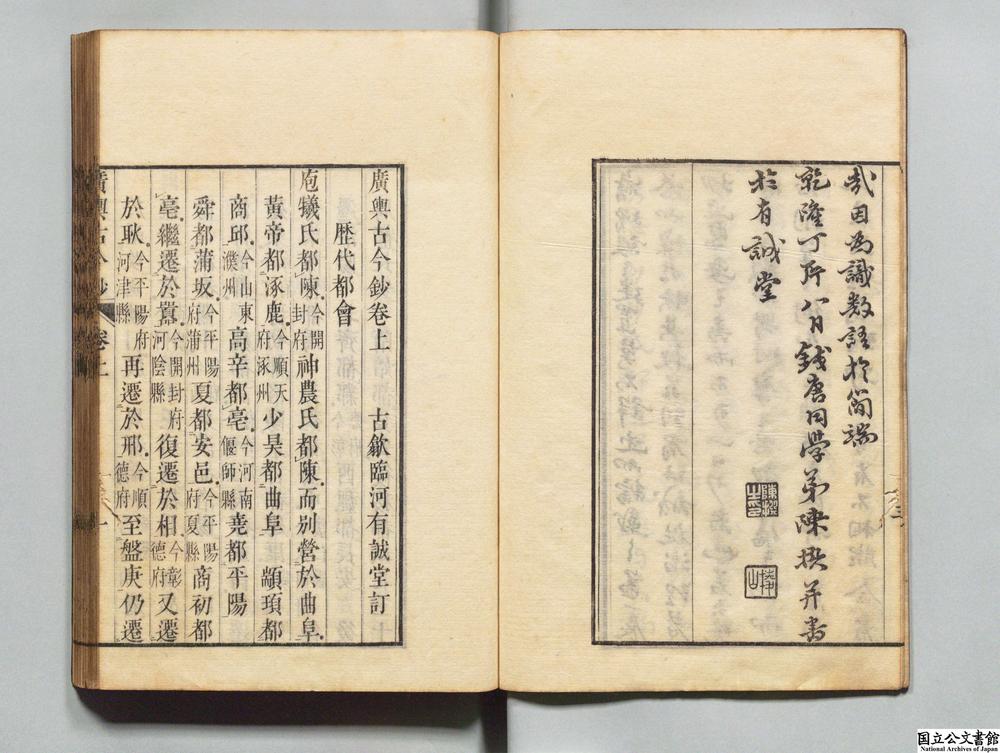 哉因爲識數語於簡端
乾隆丁卯八月錢唐同學弟陳撰并書
於有誠堂
陳撰之印
廣輿古今鈔卷上　古歙臨河有誠堂訂
歷代都會
庖犧氏都陳今開封府神農氏都陳而别營於曲阜
黄帝都涿鹿今順天府涿州少昊都曲阜　顓頊都
商邱今山東濮州高辛都亳今河南偃師縣堯都平陽
舜都蒲坂今平陽府蒲州夏都安邑今平陽府夏縣商初都
亳繼遷於囂今開封府河陰縣復遷於相今彰德府又遷
於耿今平陽府河津縣再遷於邢今順德府至盤庚仍遷
廣輿古今鈔　卷上　一
国立公文書館
National Archives of Japan